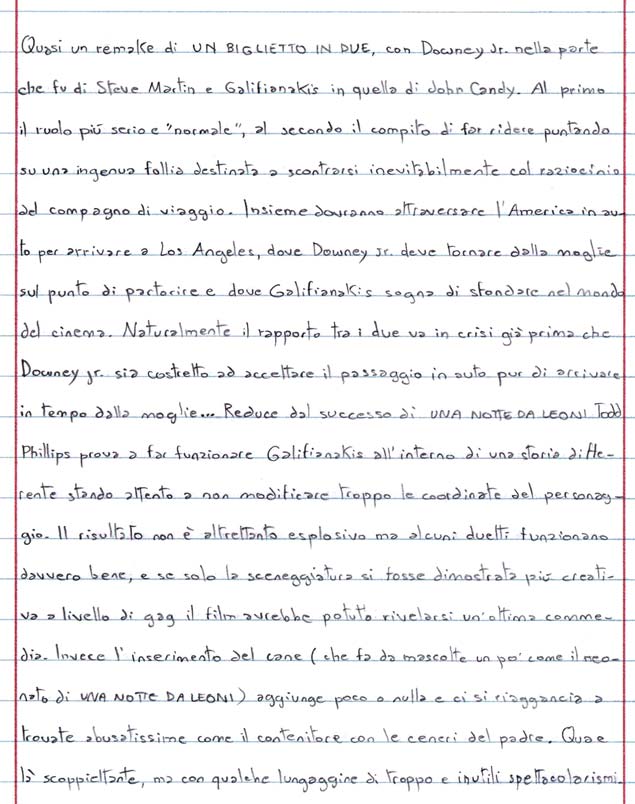 Quasi un remake di UN BIGLIETTO IN DUE, con Downey Jr. nella parte
che fu di Steve Martin e Galifianakis in quella di John Candy. Al primo
il ruolo più serio e "normale", al secondo il compito di far ridere puntando
su una ingenua follia destinata a scontrarsi inevitabilmente col raziocinio
del compagno di viaggio. Insieme dovranno attraversare l'America in au-
to per arrivare a Los Angeles, dove Downey Jr. deve tornare dalla moglie
sul punto di partorire e dove Galifianakis sogna di sfondare nel mondo
del cinema. Naturalmente il rapporto tra i due va in crisi già prima che
Downey jr. sia costretto ad accettare il passaggio in auto pur di arrivare
in tempo dalla moglie... Reduce dal successo di UNA NOTTE DA LEONI Todd
Phillips prova a far funzionare Galifianakis all'interno di una storia diffe-
rente stando attento a non modificare troppo le coordinate del personag-
gio. Il risultato non è altrettanto esplosivo ma alcuni duetti funzionano
davvero bene, e se solo la sceneggiatura si fosse dimostrata più creati-
va a livello di gag il film avrebbe potuto rivelarsi un'ottima comme-
dia. Invece l'inserimento del cane (che fa da mascotte un po' come il neo-
nato di UNA NOTTE DA LEONI) aggiunge poco o nulla e ci si riaggancia a
trovate abusatissime come il contenitore con le ceneri del padre. Qua e
là scoppiettante, ma con qualche lungaggine di troppo e inutili spettacolarismi.